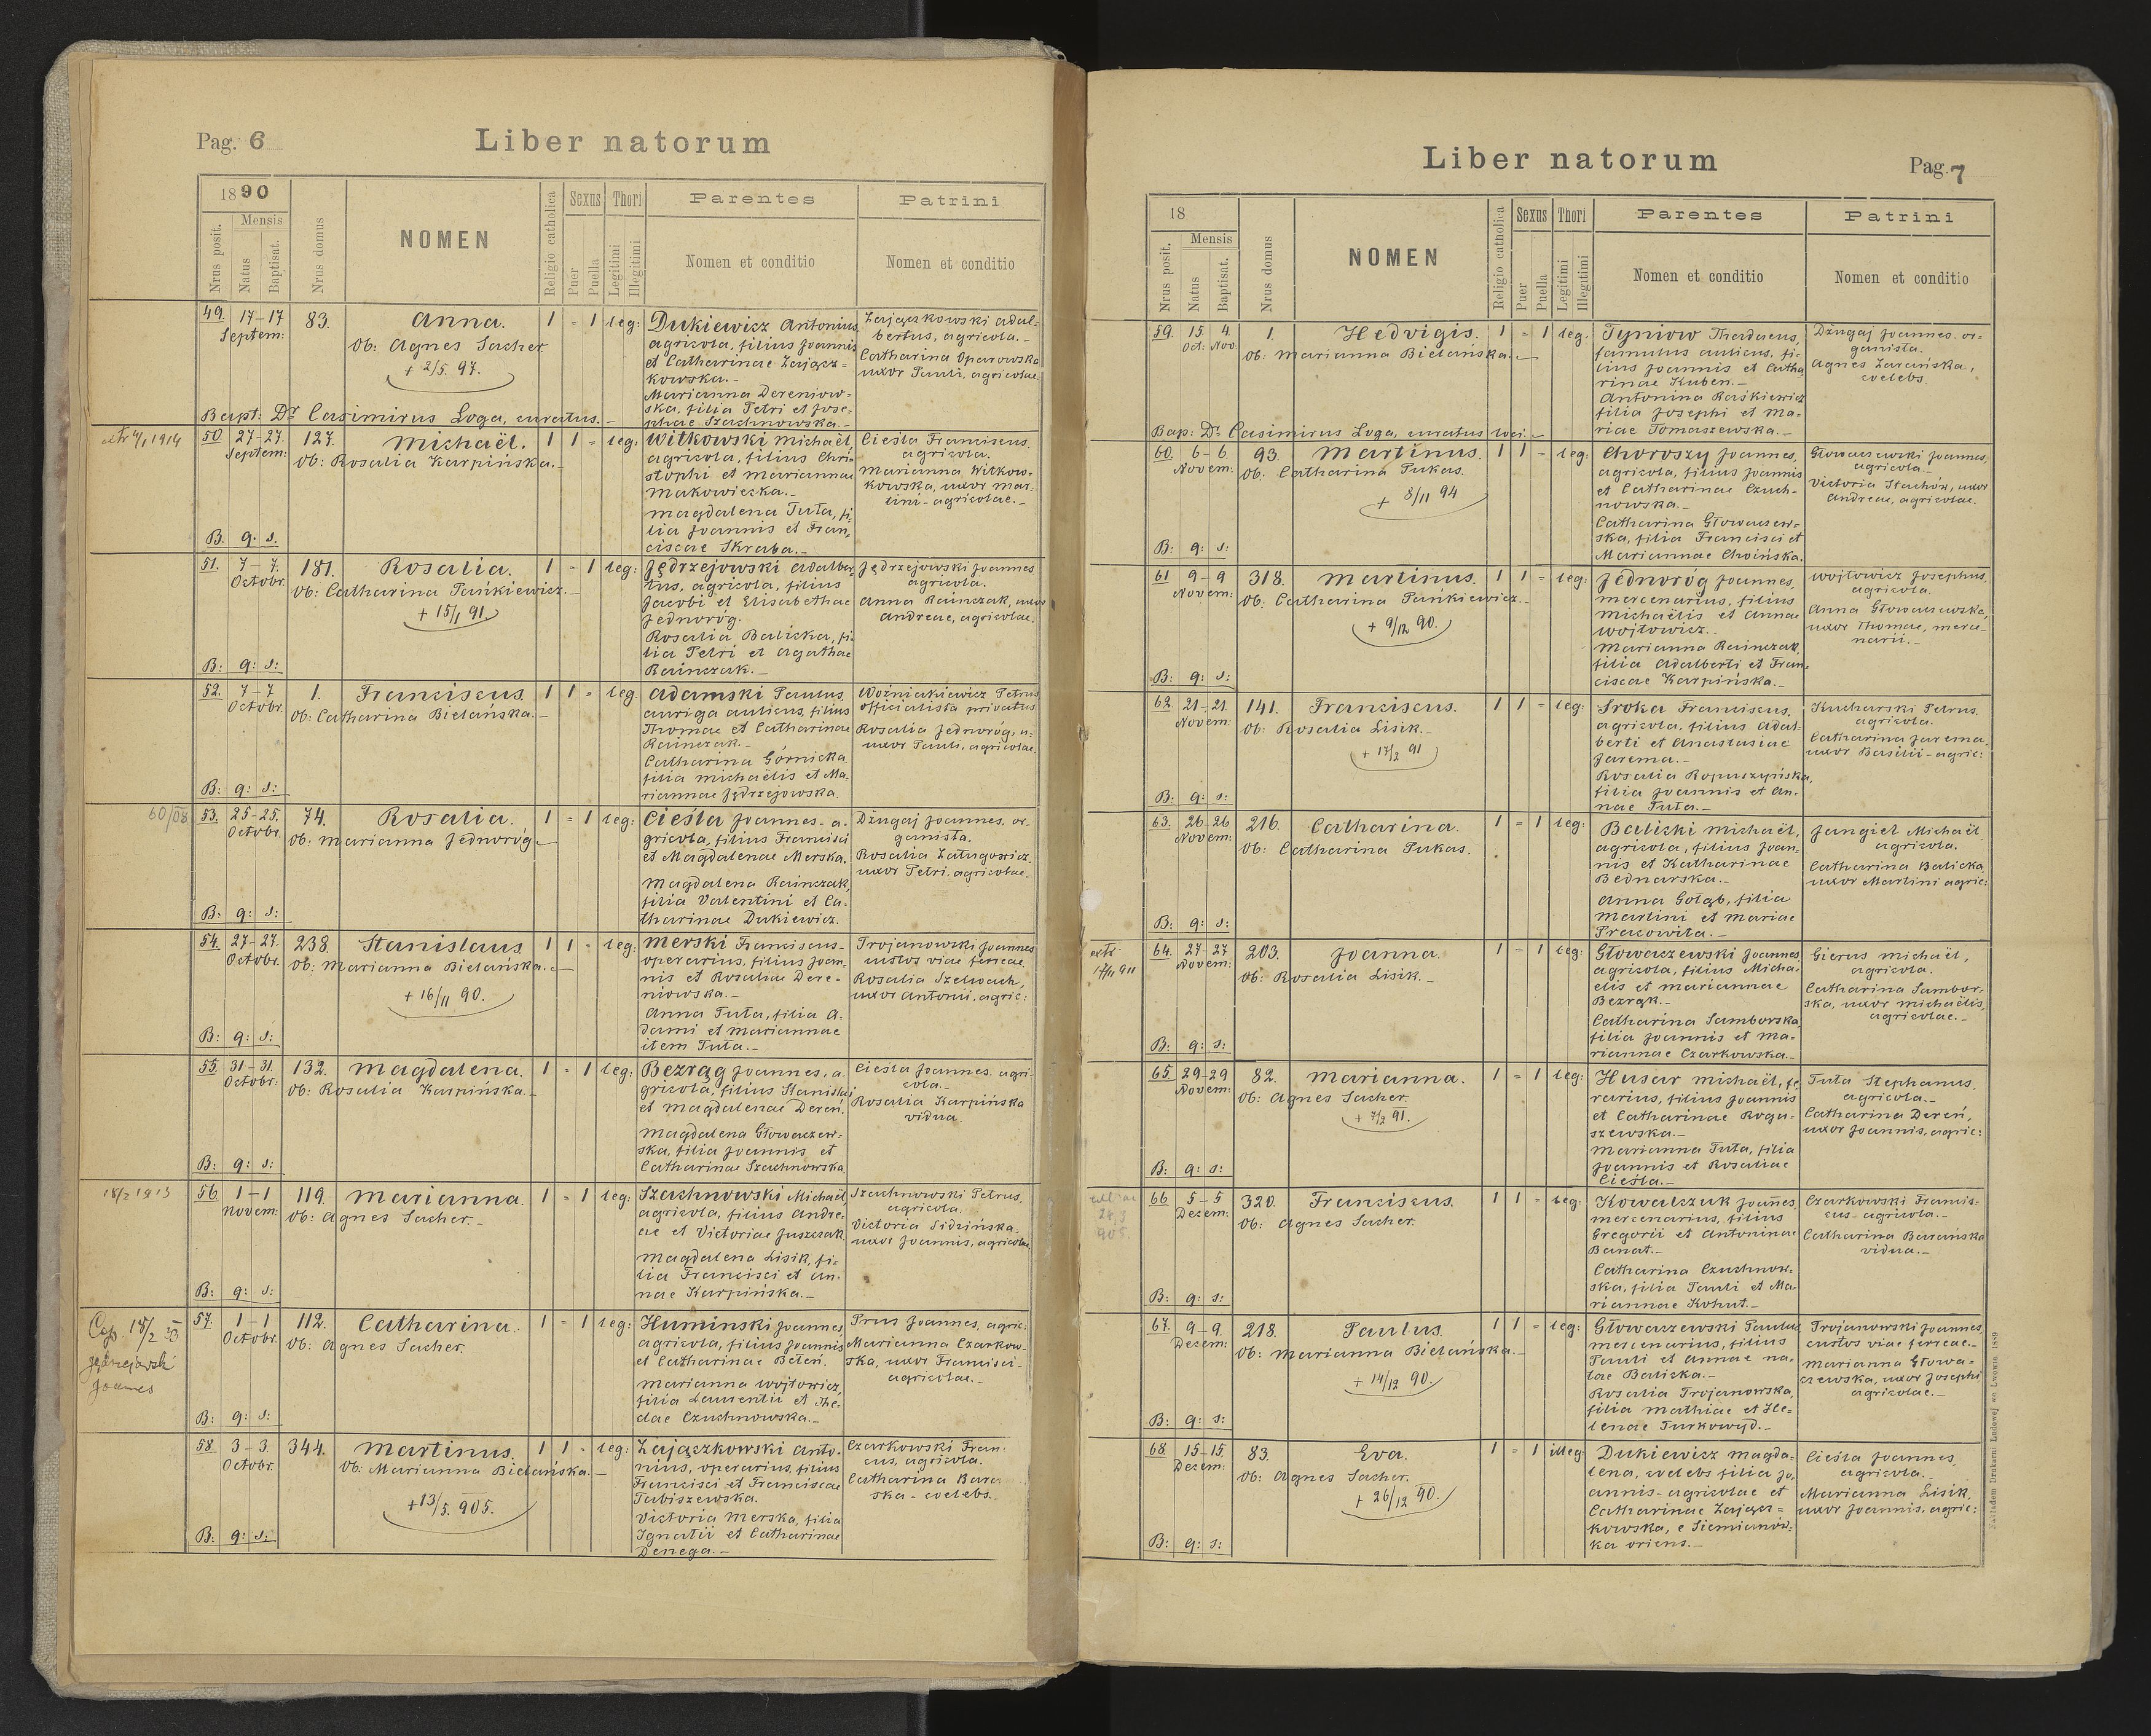 Pag. 6
Liber natorum
1890
Nrus posit.
Mensis
Natus
Baptisat.
Nrus domus
NOMEN
Religio catholica
Sexus
Puer
Puella
Thori
Legitimi
Illegitimi
Parentes
Nomen et conditio
Patrini
Nomen et conditio
49. 17-17 83. Anna. 1 - 1 leg:
Septem:
Ob: Agnes Sacher.
+ 2/5. 97.
Bapt: Dr Casimirus Loga, curatus.-
Dukiewicz Antonius,
agricola, filius Joannis
et Catharinae Zającz=
kowska.-
Marianna Dereniow-
ska, filia Petri et Jose-
phae Szachnowska.-
Zajączkowski Adal-
bertus, agricola.-
Catharina Oparowska
uxor Pauli, agricolae.
50. 27-27. 127. Michaël. 1 1 - leg:
Septem:
Ob: Rosalia Karpińska.-
B. q. s.
Witkowski Michaël,
agricola, filius Chri-
stophi et Mariannae
Makowiecka.-
Magdalena Tuta, fi-
lia Joannis et Fran-
ciscae Skraba.-
Cieśla Franciscus.
agricola.
Marianna Witkow-
kowska, uxor Mar-
tini - agricolae.-
51. 7-7. 181. Rosalia. 1 - 1 leg:
Octobr.
Ob: Catharina Pańkiewicz.-
+ 15/1 91.
B: q: s:
Jędrzejowski Adalber-
tus, agricola, filius
Jacobi et Elisabethae
Jednoróg.
Rosalia Balicka, fi-
lia Petri et Agathae
Rainczak.-
Jędrzejowski Joannes
agricola.
Anna Rainczak, uxor
Andreae, agricolae.
52. 7-7 1. Franciscus. 1 1 - leg.
Octobr.
Ob: Catharina Bielańska.-
B: q: s:
Adamski Paulus,
auriga aulicus, filius
Thomae et Catharinae
Rainczak.-
Catharina Górnicka,
filia Michaëlis et Ma-
riannae Jędrzejowska.
Woźniakiewicz Petrus
officialista privatus.
Rosalia Jednoróg, u-
uxor Pauli, agricolae.
60/08
53. 25-25. 74. Rosalia. 1 - 1 leg:
Octobr.
Ob: Marianna Jednoróg.-
B: q: s:
Cieśla Joannes - a-
gricola, filius Francisci
et Magdalenae Merska.
Magdalena Rainczak,
filia Valentini et Ca-
tharinae Dukiewicz.
Dżugaj Joannes, or-
ganista.
Rosalia Załugowicz,
uxor Petri, agricolae.
54. 27-27. 238. Stanislaus 1 1 - leg:
Octobr.
Ob: Marianna Bielańska.-
+ 16/11 90.
B: q: s:
Merski Franciscus -
operarius, filius Joan-
nis et Rosaliae Dere-
niowska.-
Anna Tuta, filia A-
dami et Mariannae
item Tuta.-
Trojanowski Joannes
custos viae ferreae.
Rosalia Szelwach,
uxor Antonii, agric:
55. 31-31. 132. Magdalena. 1 - 1 leg:
Octobr:
Ob: Rosalia Karpińska.-
B: q: s:
Bezrąg Joannes, a-
gricola, filius Stanislai
et Magdalenae Dereń.
Magdalena Głowaczew-
ska, filia Joannis et
Catharinae Szachnowska
Cieśla Joannes, agri-
cola.-
Rosalia Karpińska
vidua.
18/2 1913
56. 1-1 119. Marianna. 1 - 1 leg:
Novem:
Ob: Agnes Sacher.-
B: q: s:
Szachnowski Michaël,
agricola, filius Andre-
ae et Victoriae Juszczak.
Magdalena Lisik, fi-
lia Francisci et An-
nae Karpińska.-
Szachnowski Petrus,
agricola.
Victoria Sidzińska,
uxor Joannis, agricolae.
Joannes
57. 1-1 112. Catharina. 1 - 1 leg:
Octobr.
Ob: Agnes Sacher.
B: q: s:
Huminski Joannes,
agricola, filius Joannis
et Catharinae Beleń.
Marianna Wojtowicz,
filia Laurentii et The-
clae Czuchnowska.-
Prus Joannes, agric:
Marianna Czarkow-
ska, uxor Francisci -
agricolae.-
58. 3-3. 344. Martinus. 1 1 - leg:
Octobr.
Ob: Marianna Bielańska.-
+13/5. 905.
B: q: s:
Zajączkowski Anto-
nius, operarius, filius
Francisci et Franciscae
Tabiszewska.
Victoria Merska, filia
Ignatii et Catharinae
Denega.-
Czarkowski Fran-
cus, agricola.
Catharina Bara
ska - coelebs.
Liber natorum
Pag. 7
18
Nrus posit.
Mensis
Natus
Baptisat.
Nrus domus
NOMEN
Religio catholica
Sexus
Puer
Puella
Thori
Legitimi
Illegitimi
Parentes
Nomen et conditio
Patrini
Nomen et conditio
59. 15 4. 1. Hedvigis. 1 - 1 leg.
Oct: Nov:
Ob: Marianna Bielańska.-
Bap: Dr Casimirus Loga, curatus loci.-
Tyniow Thadaeus,
famulus aulicus, fi-
lius Joannis et Catha-
rinae Kuben.-
Antonina Raśkiewicz
filia Josephi et Ma-
riae Tomaszewska.-
Dżugaj Joannes. or-
ganista.
Agnes Zarańska,
coelebs.
60. 6-6. 93. Martinus. 1 1 - leg:
Novem:
Ob: Catharina Pukas.
+ 8/11 94
B: q: s:
Choroszy Joannes,
agricola, filius Joannis
et Catharinae Czuch-
nowska.-
Catharina Głowaczew-
ska, filia Francisci et
Mariannae Choińska.
Głowaczewski Joannes,
agricola.-
Victoria Stachów, uxor
Andreae, agricolae.
61 9-9 318. Martinus. 1 1 - leg:
Novem:
Ob: Catharina Pańkiewicz.-
+ 9/12 90.
B: q: s:
Jednoróg Joannes,
mercenarius, filius
Michaëlis et Annae
Wojtowicz.-
Marianna Rainczak,
filia Adalberti et Fran-
ciscae Karpińska.-
Wojtowicz Josephus.
agricola.
Anna Głowaczewska,
uxor Thomae, merce-
narii.-
62. 21-21. 141. Franciscus. 1 1 - leg:
Novem:
Ob: Rosalia Lisik.-
+ 17/2 91
B: q: s:
Sroka Franciscus,
agricola, filius Adal-
berti et Anastasiae
Jarema.-
Rosalia Kopuszyńska,
filia Joannis et An-
nae Tuta.-
Kucharski Petrus.
agricola.
Catharina Jarema,
uxor Basilii - agric:
63. 26-26 216. Catharina. 1 - 1 leg:
Novem:
Ob: Catharina Pukas.
B: q: s:
Balicki Michaël,
agricola, filius Joan-
nis et Katharinae
Bednarska.-
Anna Gołąb, filia
Martini et Mariae
Prakowita.-
Jangiel Michaël
agricola.
Catharina Balicka,
uxor Martini agric:
64. 27-27 203. Joanna. 1 - 1 leg:
Novem:
Ob: Rosalia Lisik.-
B: q: s:
Głowaczewski Joannes,
agricola, filius Micha-
elis et Mariannae
Bezrąk.-
Catharina Samborska,
filia Joannis et Ma-
riannae Czarkowska.-
Gierus Michaël,
agricola.
Catharina Sambor-
ska, uxor Michaëlis,
agricolae.-
65 29-29 82. Marianna. 1 - 1 leg:
Novem:
Ob: Agnes Sacher.
+ 7/2 91.
B: q: s:
Husar Michaël, fe-
rarius, filius Joannis
et Catharinae Roga-
szewska.-
Marianna Tuta, filia
Joannis et Rosaliae
Cieśla.-
Tuta Stephanus.
agricola.-
Catharina Dereń,
uxor Joannis, agric:
66 5-5 320. Franciscus. 1 1 - leg:
Decem:
Ob: Agnes Sacher.
B: q: s:
Kowalczuk Joannes,
mercenarius, filius
Gregorii et Antoninae
Banat.-
Catharina Czuchnow-
ska, filia Pauli et Ma-
riannae Kohut.-
Czarkowski Francis-
cus - agricola.-
Catharina Barańska
vidua.-
67. 9-9. 218. Paulus. 1 1 - leg:
Decem:
Ob: Marianna Bielańska.-
+ 14/12 90.
B: q: s:
Głowaczewski Paulus,
mercenarius, filius
Pauli et Annae na-
tae Balicka.-
Rosalia Trojanowska,
filia Mathiae et He-
lenae Turkowyd.-
Trojanowski Joannes,
custos viae ferreae.-
Marianna Głowa-
czewska, uxor Josephi
agricolae.-
68 15-15. 83. Eva. 1 - 1 illeg:
Decem:
Ob: Agnes Sacher.
+ 26/12 90.
B: q: s:
Dukiewicz Magda-
lena, coelebs filia Jo-
annis - agricolae et
Catharinae Zającz=
kowska, e Siemianów-
ka oriens.-
Cieśla Joannes,
agricola.-
Marianna Lisik,
uxor Joannis, agric:
Nakładem Drukarni Ludowej we Lwowie 1889